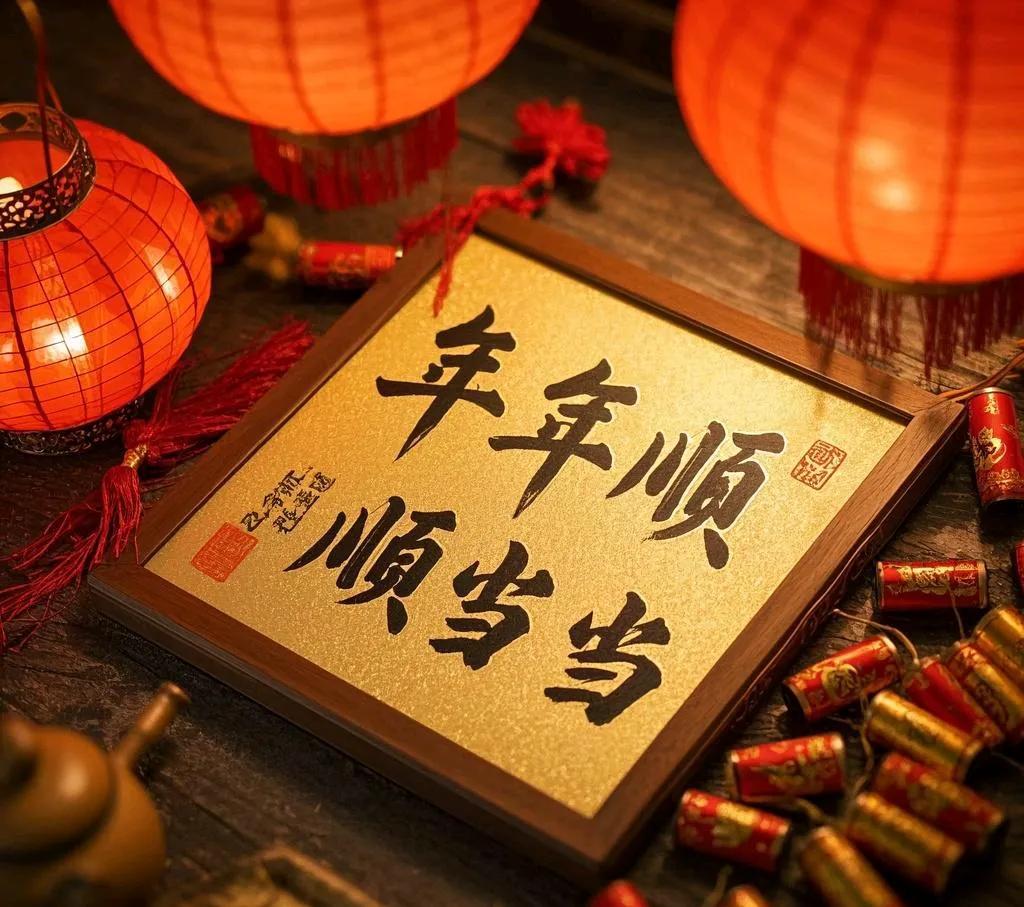 年年顺
顺当当